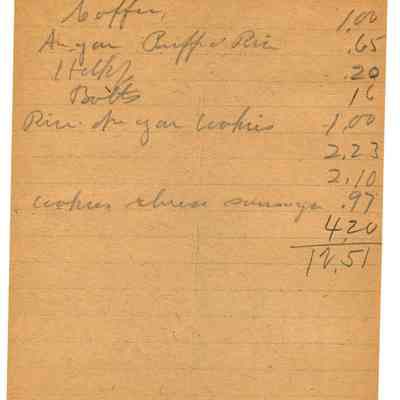 Coffee, 1.00
Sugar Puffed Rice .65
.20
Bolts 16
Rice Sugar Cookies 1.00
2.23
2.10
Cookies cheese sausage .97
4.20
12.51